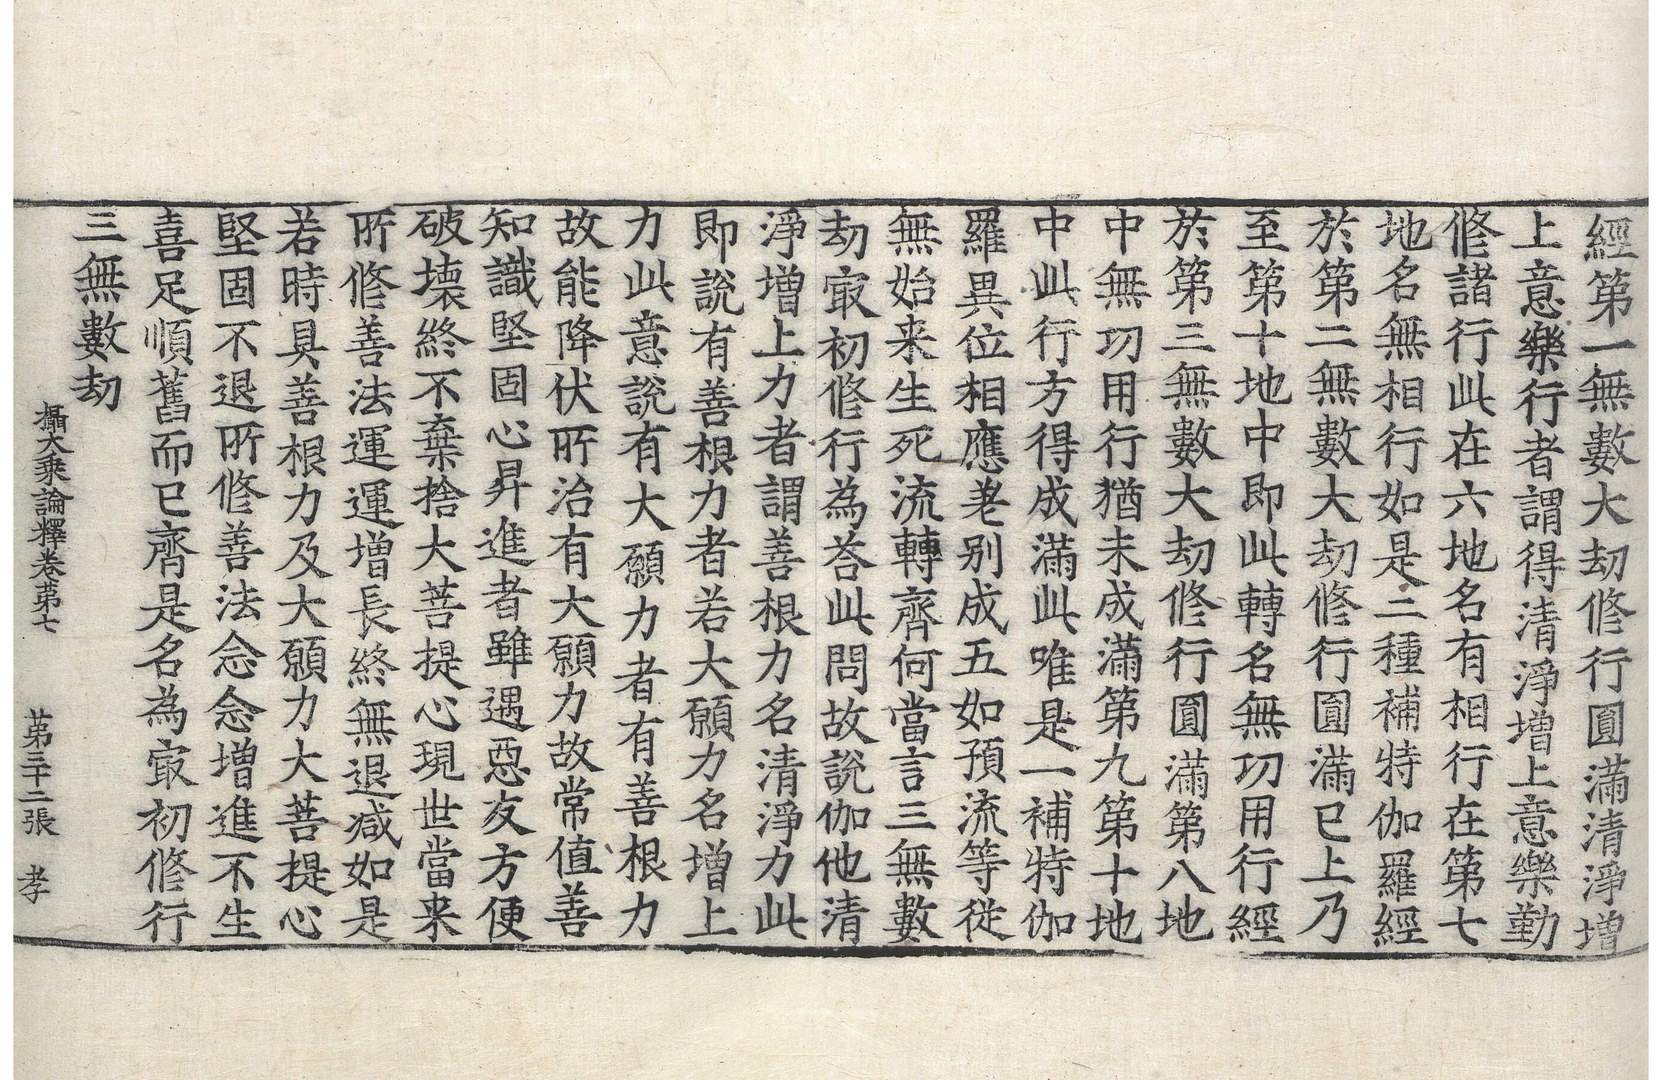 經第一無數大劫修行圓滿清淨增
上意樂行者謂得清淨增上意樂勤
修諸行此在六地名有相行在第七
地名無相行如是二種補特伽羅經
於第二無數大劫修行圓滿已上乃
至第十地中即此轉名無功用行經
於第三無數大劫修行圓滿第八地
中無功用行猶未成滿第九第十地
中此行方得成滿此唯是一補特伽
羅異位相應差别成五如預流等從
無始来生死流轉齊何當言三無數
劫㝡初修行為荅此問故說伽他清
淨增上力者謂善根力名清淨力此
即說有善根力者若大願力名增上
力此意說有大願力者有善根力
故能降伏所治有大願力故常值善
知識堅固心昇進者雖遇惡友方便
破壞終不棄捨大菩提心現世當来
所修善法運運增長終無退减如是
若時具善根力及大願力大菩提心
堅固不退所修善法念念增進不生
喜足順舊而已齊是名為㝡初修行
三無數劫
攝大乘論釋卷第七 第三十二張 孝